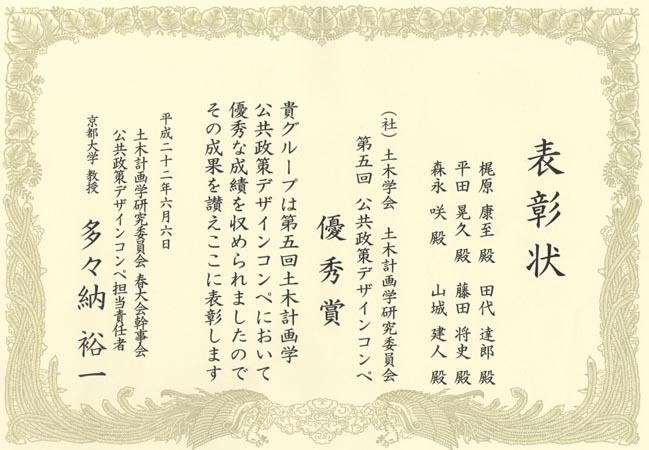 表彰状
梶原 康至 殿 田代 達郎 殿
平田 晃久 殿 藤田 将史 殿
森永 咲 殿 山城 建人 殿
(社)土木学会 土木計画学研究委員会
第五回 公共政策デザインコンペ
優秀賞
貴グループは第五回土木計画学
公共政策デザインコンペにおいて
優秀な成績を収められましたので
その成果を讃えここに表彰します
平成二十二年六月六日
土木計画学研究委員会 春大会幹事会
公共政策デザインコンペ担当責任者
京都大学 教授 多々納 裕一